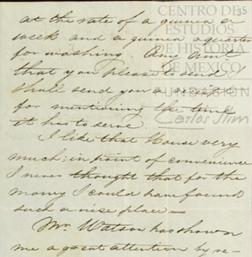 at the rate of a guinea a
week and a guinea a quarter
for washing. Any
that you please to send
shall send you a receipt
for mentioning the time
it has to serve
I like that House very
much; in point of convenience
I never thought that for the
money I could have found
such a nice place—
Mr. Watson has shown
me a great attention by re-
CENTRO DE
ESTUDIOS
DE HISTORIA
DE MEXICO
FUNDACIÓN
Carlos Slim